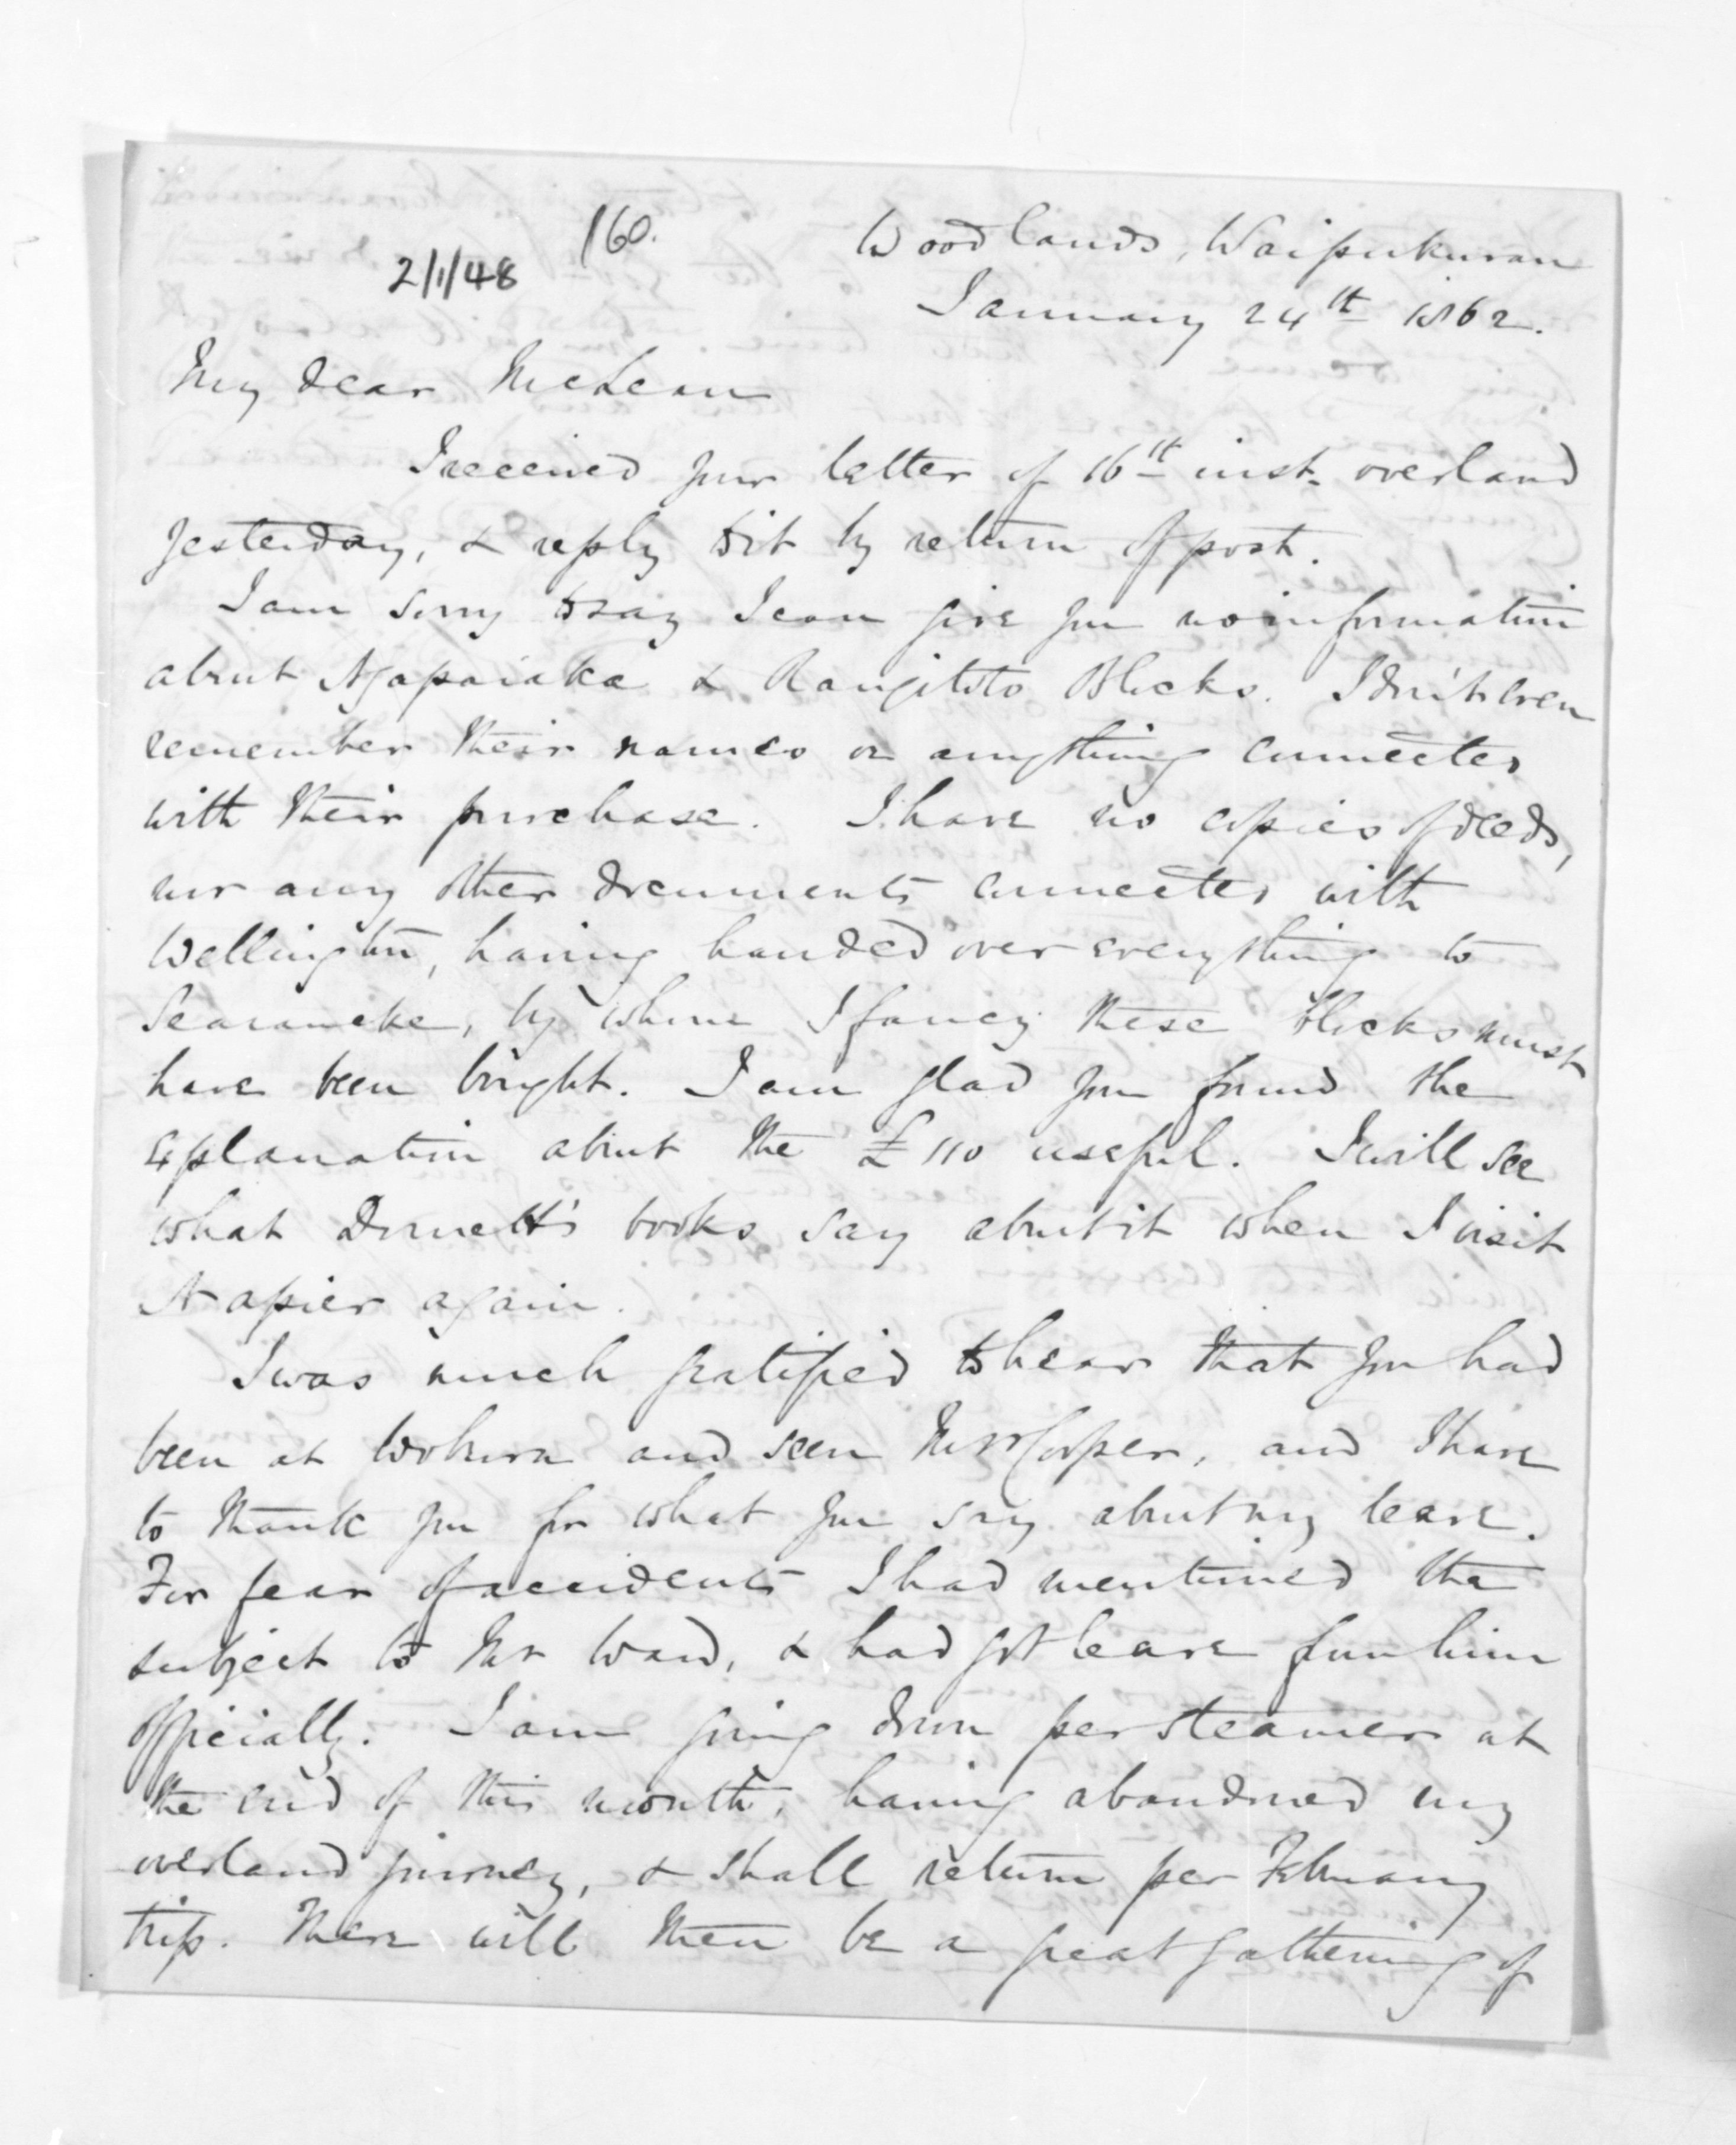 160.
2/1/48
Woodlands, Waipukurau
January 24th 1862.
My dear McLean
I received your letter of 16th inst. overland
yesterday, & reply to it by return of post.
I am sorry to say I can give you no information
about Ngapaiaka & Rangitoto Blocks. I don't even
remember their names or anything connected
with their purchase. I have no copies of deeds,
nor any other documents connected with
Wellington, having handed over everything to
Searancke, by whom I fancy these blocks must
have been bought. I am glad you found the
Explanation about the £110 useful. I will see
what Domett's books say about it when I visit
Napier again.
I was much gratified to hear that you had
been at Woburn and seen Mrs Cooper, and I have
to thank you for what you say about my leave.
For fear of accidents I had mentioned the
subject to Mr Ward, & had got leave from him
officially. I am going down per steamer at
the end of this month, having abandoned my
overland journey, & shall return per February
trip. There will then be a great gathering of